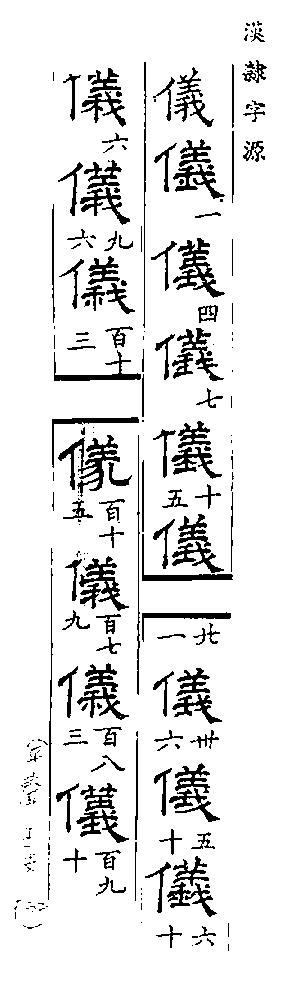 漢隸字源
儀儀一儀四儀七儀十五儀廿一儀卅六儀五十儀六十
儀六儀九六儀百十三儀百十五儀百七九儀百八三儀百九十